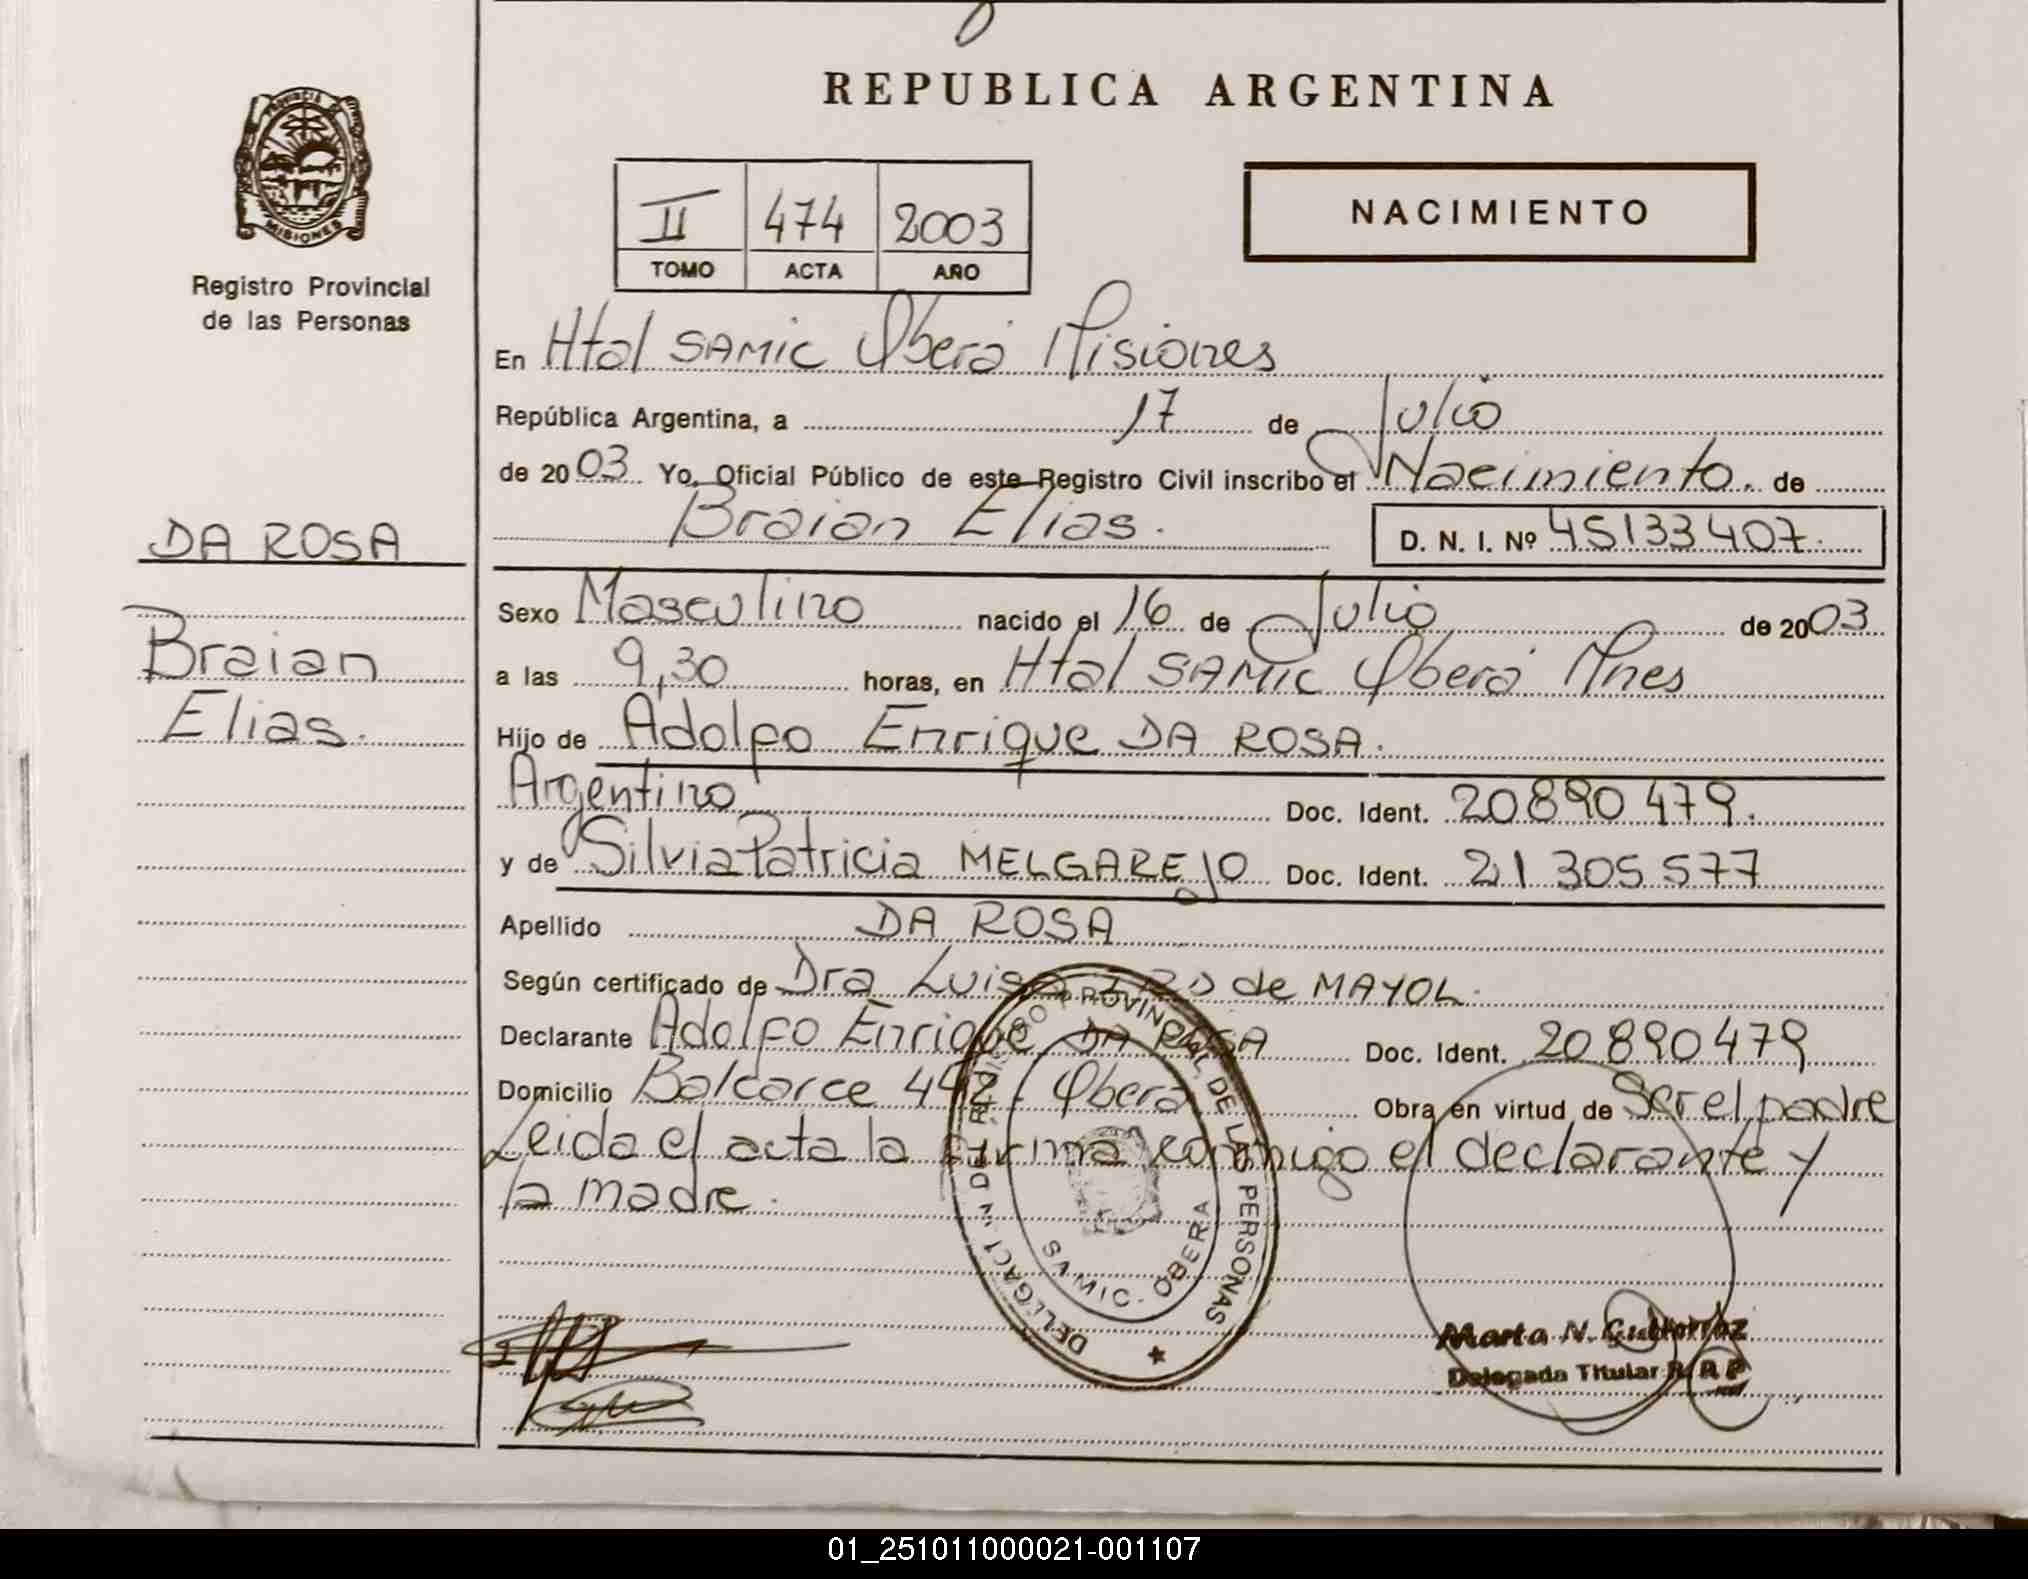 REPUBLICA ARGENTINA
PROVINCIA DE
MISIONES
Registro Provincial
de las Personas
II 474 2003
TOMO ACTA AÑO
NACIMIENTO
En Htal SAMIC Oberá Misiones
República Argentina, a 17 de Julio
de 2003 Yo, Oficial Público de este Registro Civil inscribo el Nacimiento. de
Braian Elias. D. N. I. Nº 45133407.
DA ROSA
Braian
Elias.
Sexo Masculino nacido el 16 de Julio de 2003
a las 9,30 horas, en Htal SAMIC Oberá Mnes
Hijo de Adolfo Enrique DA ROSA.
Argentino Doc. Ident. 20890479.
y de Silvia Patricia MELGAREJO Doc. Ident. 21305577
Apellido DA ROSA
Según certificado de Dra Luisa de MAYOL.
Declarante Adolfo Enrique DA ROSA Doc. Ident. 20890479
Domicilio Balcarce 492 - Oberá Obra en virtud de Ser el padre
Leida el acta la firma conmigo el declarante y
la madre.
PROVINCIAL DE LAS PERSONAS
SAMIC - OBERA
Marta N. Gutierrez
Delegada Titular R. P.
01_251011000021-001107